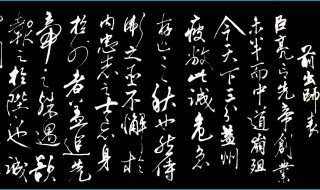 前出師表
臣亮言先帝創業
未半而中道崩殂
今天下三分益州
疲敝此誠危急
存亡之秋也然侍
衛之臣不懈於
內忠志之士忘身
於外者蓋追先
帝之殊遇欲
報之於陛下也誠